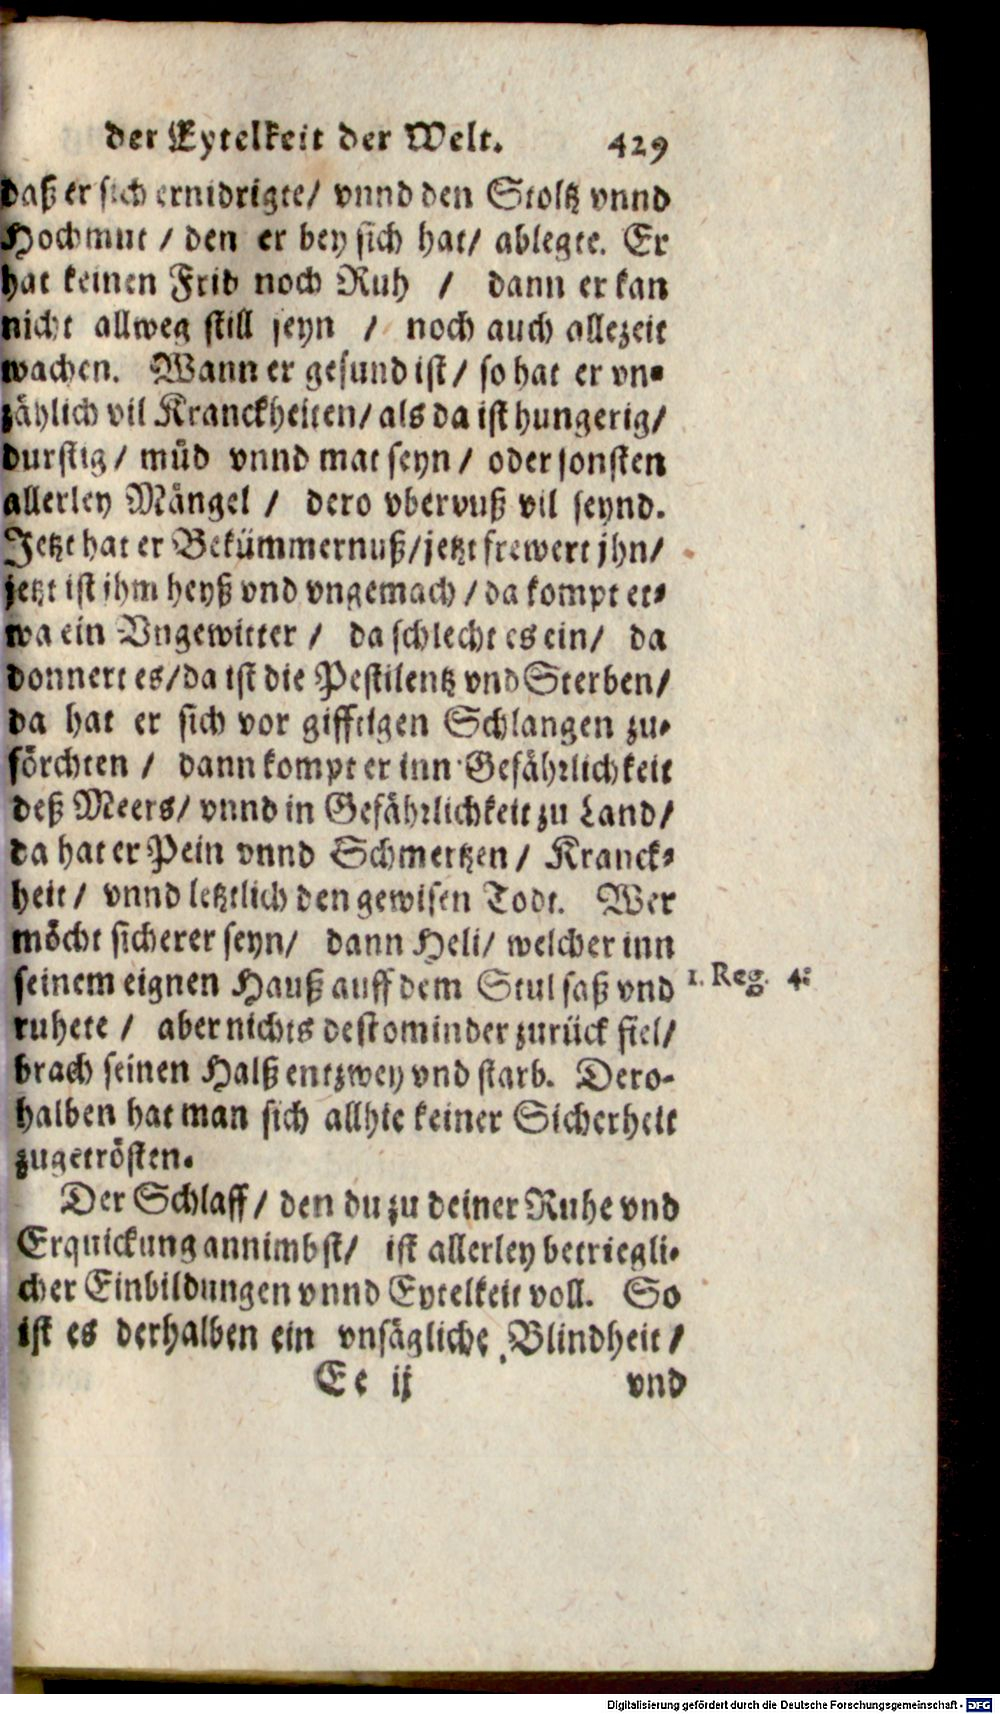 der Eytelkeit der Welt. 429
daß er sich ernidrigte/ vnnd den Stoltz vnnd
Hochmut / den er bey sich hat/ ablegte. Er
hat keinen Frid noch Ruh / dann er kan
nicht allweg still seyn / noch auch allezeit
wachen. Wann er gesund ist/ so hat er vn-
zählich vil Kranckheiten/ als da ist hungerig/
durstig/ müd vnnd mat seyn/ oder sonsten
allerley Mängel / dero vbervuß vil seynd.
Jetzt hat er Bekümmernuß/ jetzt frewert jhn/
jetzt ist jhm heyß vnd vngemach / da kompt et-
wa ein Vngewitter / da schlecht es ein/ da
donnert es/ da ist die Pestilentz vnd Sterben/
da hat er sich vor gifftigen Schlangen zu-
förchten / dann kompt er inn Gefährlichkeit
deß Meers/ vnnd in Gefährlichkeit zu Land/
da hat er Pein vnnd Schmertzen / Kranck-
heit / vnnd letztlich den gewisen Todt. Wer
möcht sicherer seyn/ dann Heli/ welcher inn
seinem eignen Hauß auff dem Stul saß vnd
1. Reg. 4:
ruhete / aber nichts destominder zurück fiel/
brach seinen Halß entzwey vnd starb. Dero-
halben hat man sich allhie keiner Sicherheit
zugetrösten.
Der Schlaff / den du zu deiner Ruhe vnd
Erquickung annimbst/ ist allerley betriegli-
cher Einbildungen vnnd Eytelkeit voll. So
ist es derhalben ein vnsägliche Blindheit /
Ee ij vnd
Digitalisierung gefördert durch die Deutsche Forschungsgemeinschaft - DFG